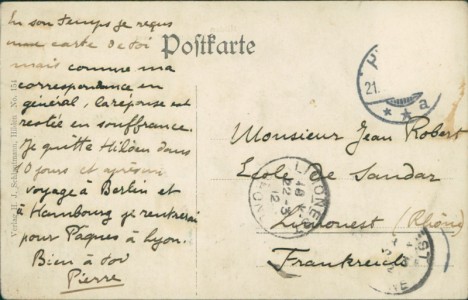 En son temps je reçus
une carte de toi
mais comme ma
correspondance en
général, la réponse est
restée en souffrance.
Je quitte Hilden dans
jours et après un
voyage à Berlin et
Hambourg je rentrerai
pour Pâques à Lyon.
Bien à toi
Pierre
Postkarte
Monsieur Jean Robert
Ecole de Sandar
Limonest (Rhône)
Frankreich
21.
* * a
22-3
12
Verlag H. J. Hilden. No. 151